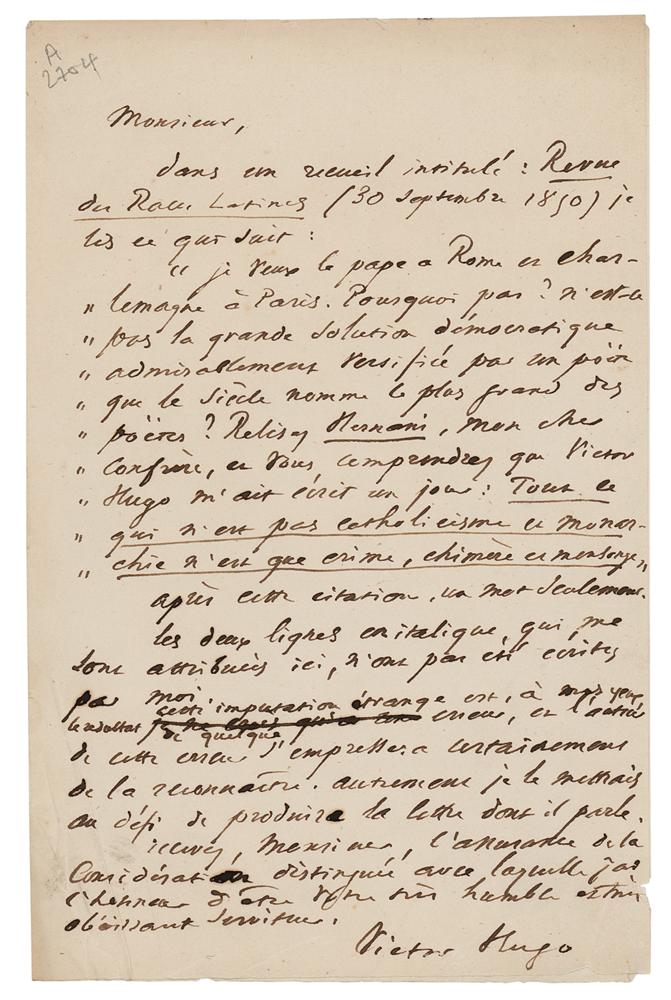 A
2704
Monsieur,
dans un recueil intitulé : Revue
des Races Latines (30 Septembre 1850) je
lis ce qui suit :
" je veux le pape a Rome et Char-
" lemagne à Paris. Pourquoi pas ? n'est-ce
" pas la grande solution démocratique
" admirablement versifiée par un poëte
" que le Siècle nomme le plus grand des
" poëtes ? Relisez Hernani, mon cher
" confrère, et vous comprendrez que Victor
" Hugo m'ait écrit un jour : Tout ce
" qui n'est pas catholicisme et monar-
" chie n'est que crime, chimère et mensonge,"
après cette citation, un mot seulement.
les deux lignes en italique, qui me
sont attribuées ici, n'ont pas été écrites
par moi
cette imputation étrange est, à mes yeux
le résultat de quelque erreur, et l'auteur
de cette erreur s'empressera certainement
de la reconnaître. autrement je le mettrais
au défi de produire la lettre dont il parle.
recevez, Monsieur, l'assurance de la
Considération distinguée avec laquelle j'ai
l'honneur d'être votre très humble et très
obéissant Serviteur.
Victor Hugo